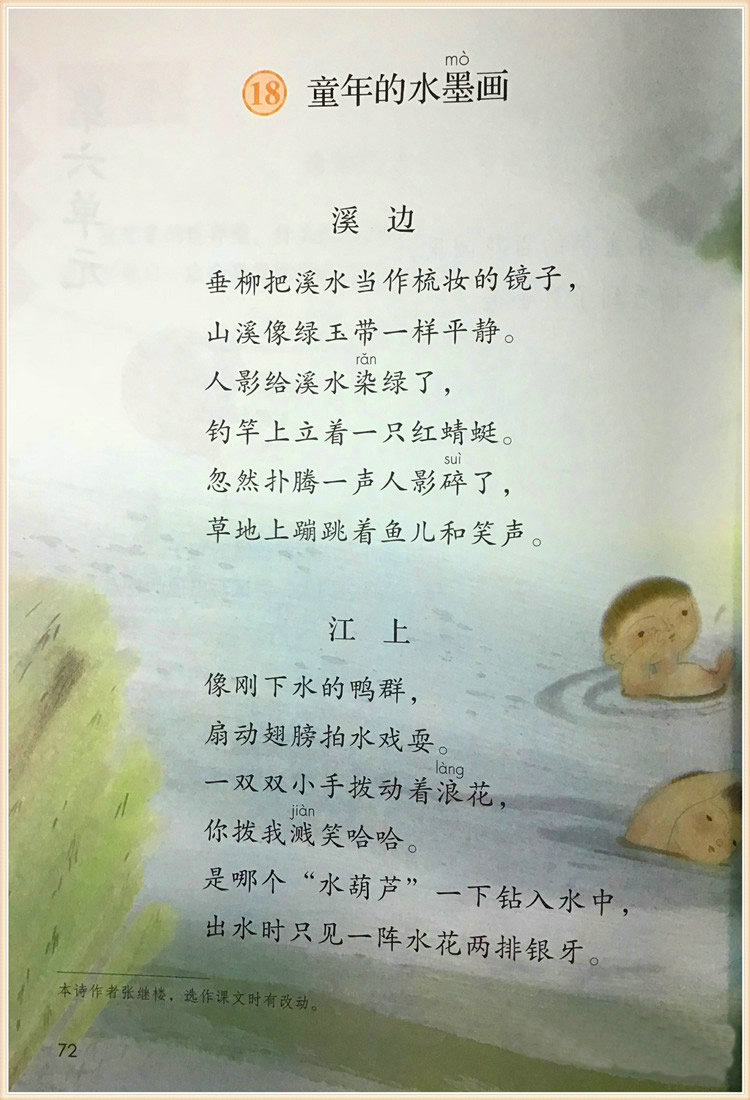 mò
18 童年的水墨画
溪边
垂柳把溪水当作梳妆的镜子，
山溪像绿玉带一样平静。
rǎn
人影给溪水染绿了，
钓竿上立着一只红蜻蜓。
suì
忽然扑腾一声人影碎了，
草地上蹦跳着鱼儿和笑声。
江上
像刚下水的鸭群，
扇动翅膀拍水戏耍。
làng
一双双小手拨动着浪花，
jiàn
你拨我溅笑哈哈。
是哪个“水葫芦”一下钻入水中，
出水时只见一阵水花两排银牙。
本诗作者张继楼，选作课文时有改动。
72
第六单元